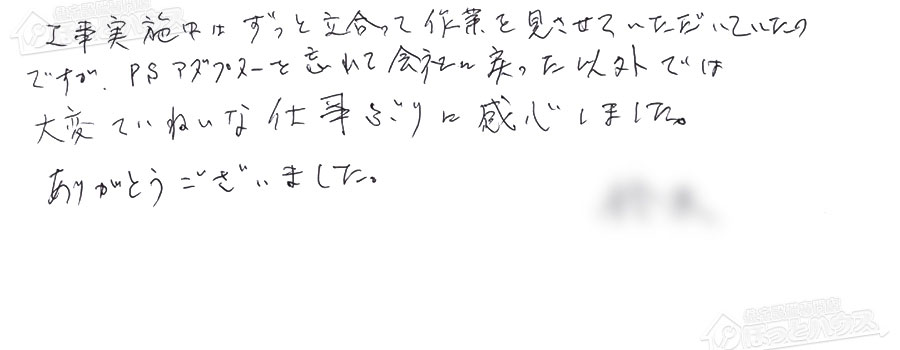 工事実施中はずっと交合って作業を見させていただいていたの
ですが、PSアダプターを忘れて会社に戻った以外では
大変ていねいな仕事ぶりに感心しました。
ありがとうございました。
ほっとハウス